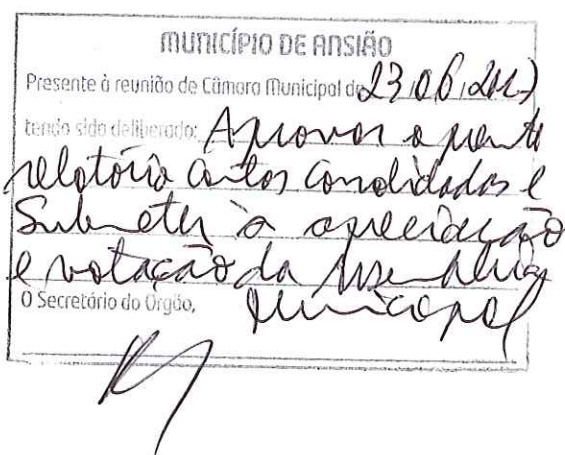 MUNICÍPIO DE ANSIÃO
Presente à reunião de Câmara Municipal de 23/06/2017
tendo sido deliberado: Aprovar o presente
relatório contas consolidadas e
Submeter à apreciação
e votação da Assembleia
O Secretário do Órgão, Municipal